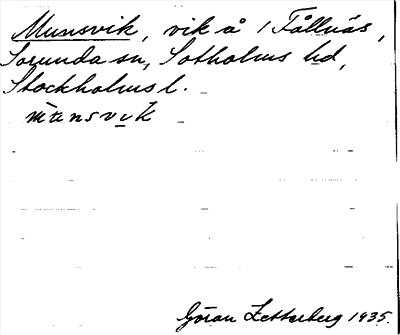 Munsvik, vik å 1 Fållnäs,
Sorunda sn, Sotholms hd,
Stockholms l.
munsvik
Göran Zetterberg 1935.